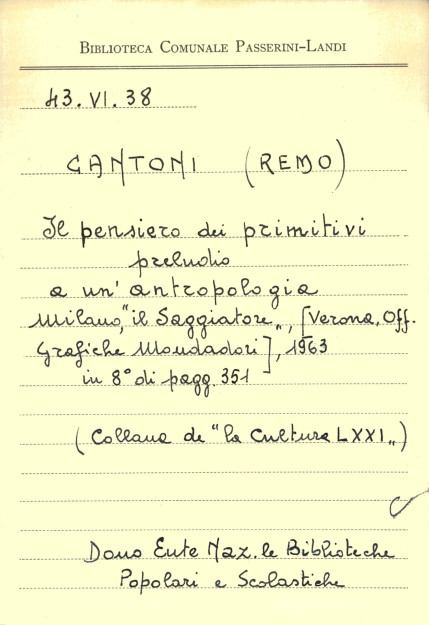 BIBLIOTECA COMUNALE PASSERINI-LANDI
43. VI. 38
CANTONI (REMO)
Il pensiero dei primitivi
preludio
a un' antropologia
Milano, "il Saggiatore„, [Verona, Off.
Grafiche Mondadori], 1963
in 8° di pagg. 351
(Collana de "la Cultura LXXI„)
Dono Ente Naz.le Biblioteche
Popolari e Scolastiche